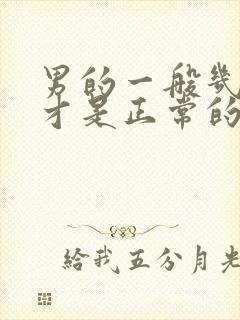 男的一般幾
才是正常的
給我五分月光